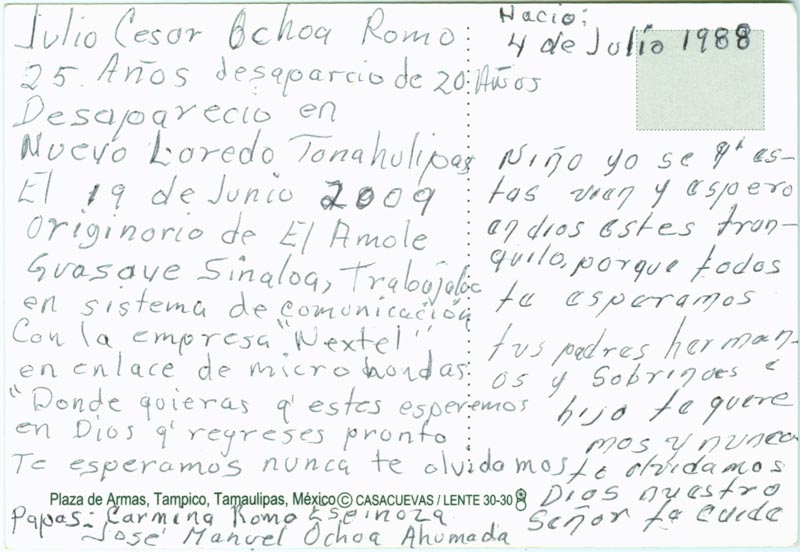 Julio Cesar Ochoa Romo
25 Años desaparcio de 20 Años
Desaparecio en
Nuevo Loredo Tonahulipas
El 19 de Junio 2009
Originorio de El Amole
Guasave Sinaloa, Trabajaba
en sistema de comunicación
Con la empresa "Nextel"
en enlace de micro hondas
"Donde quieras q' estes esperemos
en Dios q' regreses pronto
Te esperamos nunca te olvidamos
Nacio:
4 de Julio 1988
Niño yo se q' es-
tas vien y espero
en dios estes tran-
quilo, porque todos
te esperamos
tus padres herman-
os y Sobrinos
hijo te quere
mos y nunca
te olvidamos
Dios nuestro
Señor te cuide
Plaza de Armas, Tampico, Tamaulipas, México © CASACUEVAS / LENTE 30-30
Papas: Carmina Romo Espinoza
José Manuel Ochoa Ahumada